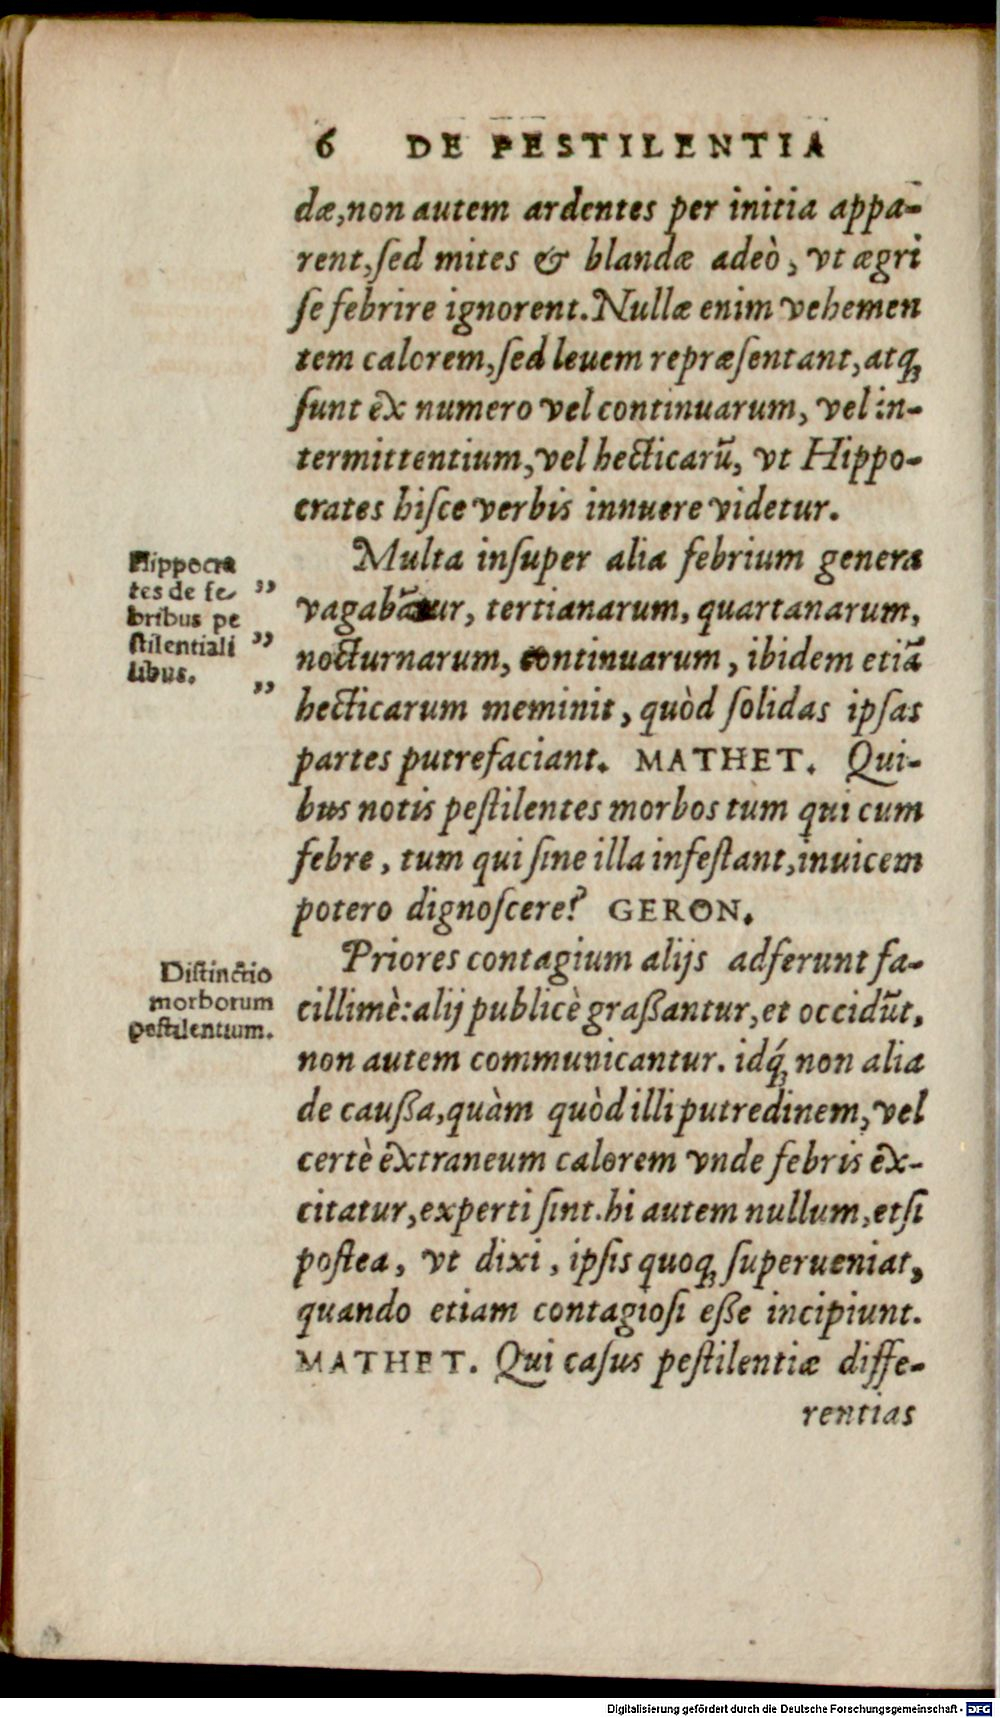 6 DE PESTILENTIA
dæ,non autem ardentes per initia appa-
rent,ſed mites & blandæ adeò, vt ægri
ſe febrire ignorent.Nullæ enim vehemen
tem calorem,ſed leuem repræſentant,atqꝫ
ſunt ex numero vel continuarum, vel in-
termittentium,vel hecticarũ, vt Hippo-
crates hiſce verbis innuere videtur.
Hippocra
tes de fe-
bribus pe
ſtilentiali
libus.
„
„
„
Multa inſuper alia febrium genera
vagabãtur, tertianarum, quartanarum,
nocturnarum, continuarum, ibidem etiã
hecticarum meminit, quòd ſolidas ipſas
partes putrefaciant. MATHET. Qui-
bus notis peſtilentes morbos tum qui cum
febre, tum qui ſine illa infeſtant,inuicem
potero dignoſcere? GERON.
Diſtinctio
morborum
peſtilentium.
Priores contagium alijs adferunt fa-
cillimè:alij publicè graßantur,et occidũt,
non autem communicantur. idq́ꝫ non alia
de caußa,quàm quòd illi putredinem,vel
certè extraneum calorem vnde febris ex-
citatur,experti ſint.hi autem nullum,etſi
poſtea, vt dixi, ipſis quoqꝫ ſuperueniat,
quando etiam contagioſi eße incipiunt.
MATHET. Qui caſus peſtilentiæ diffe-
rentias
Digitalisierung gefördert durch die Deutsche Forschungsgemeinschaft - DFG